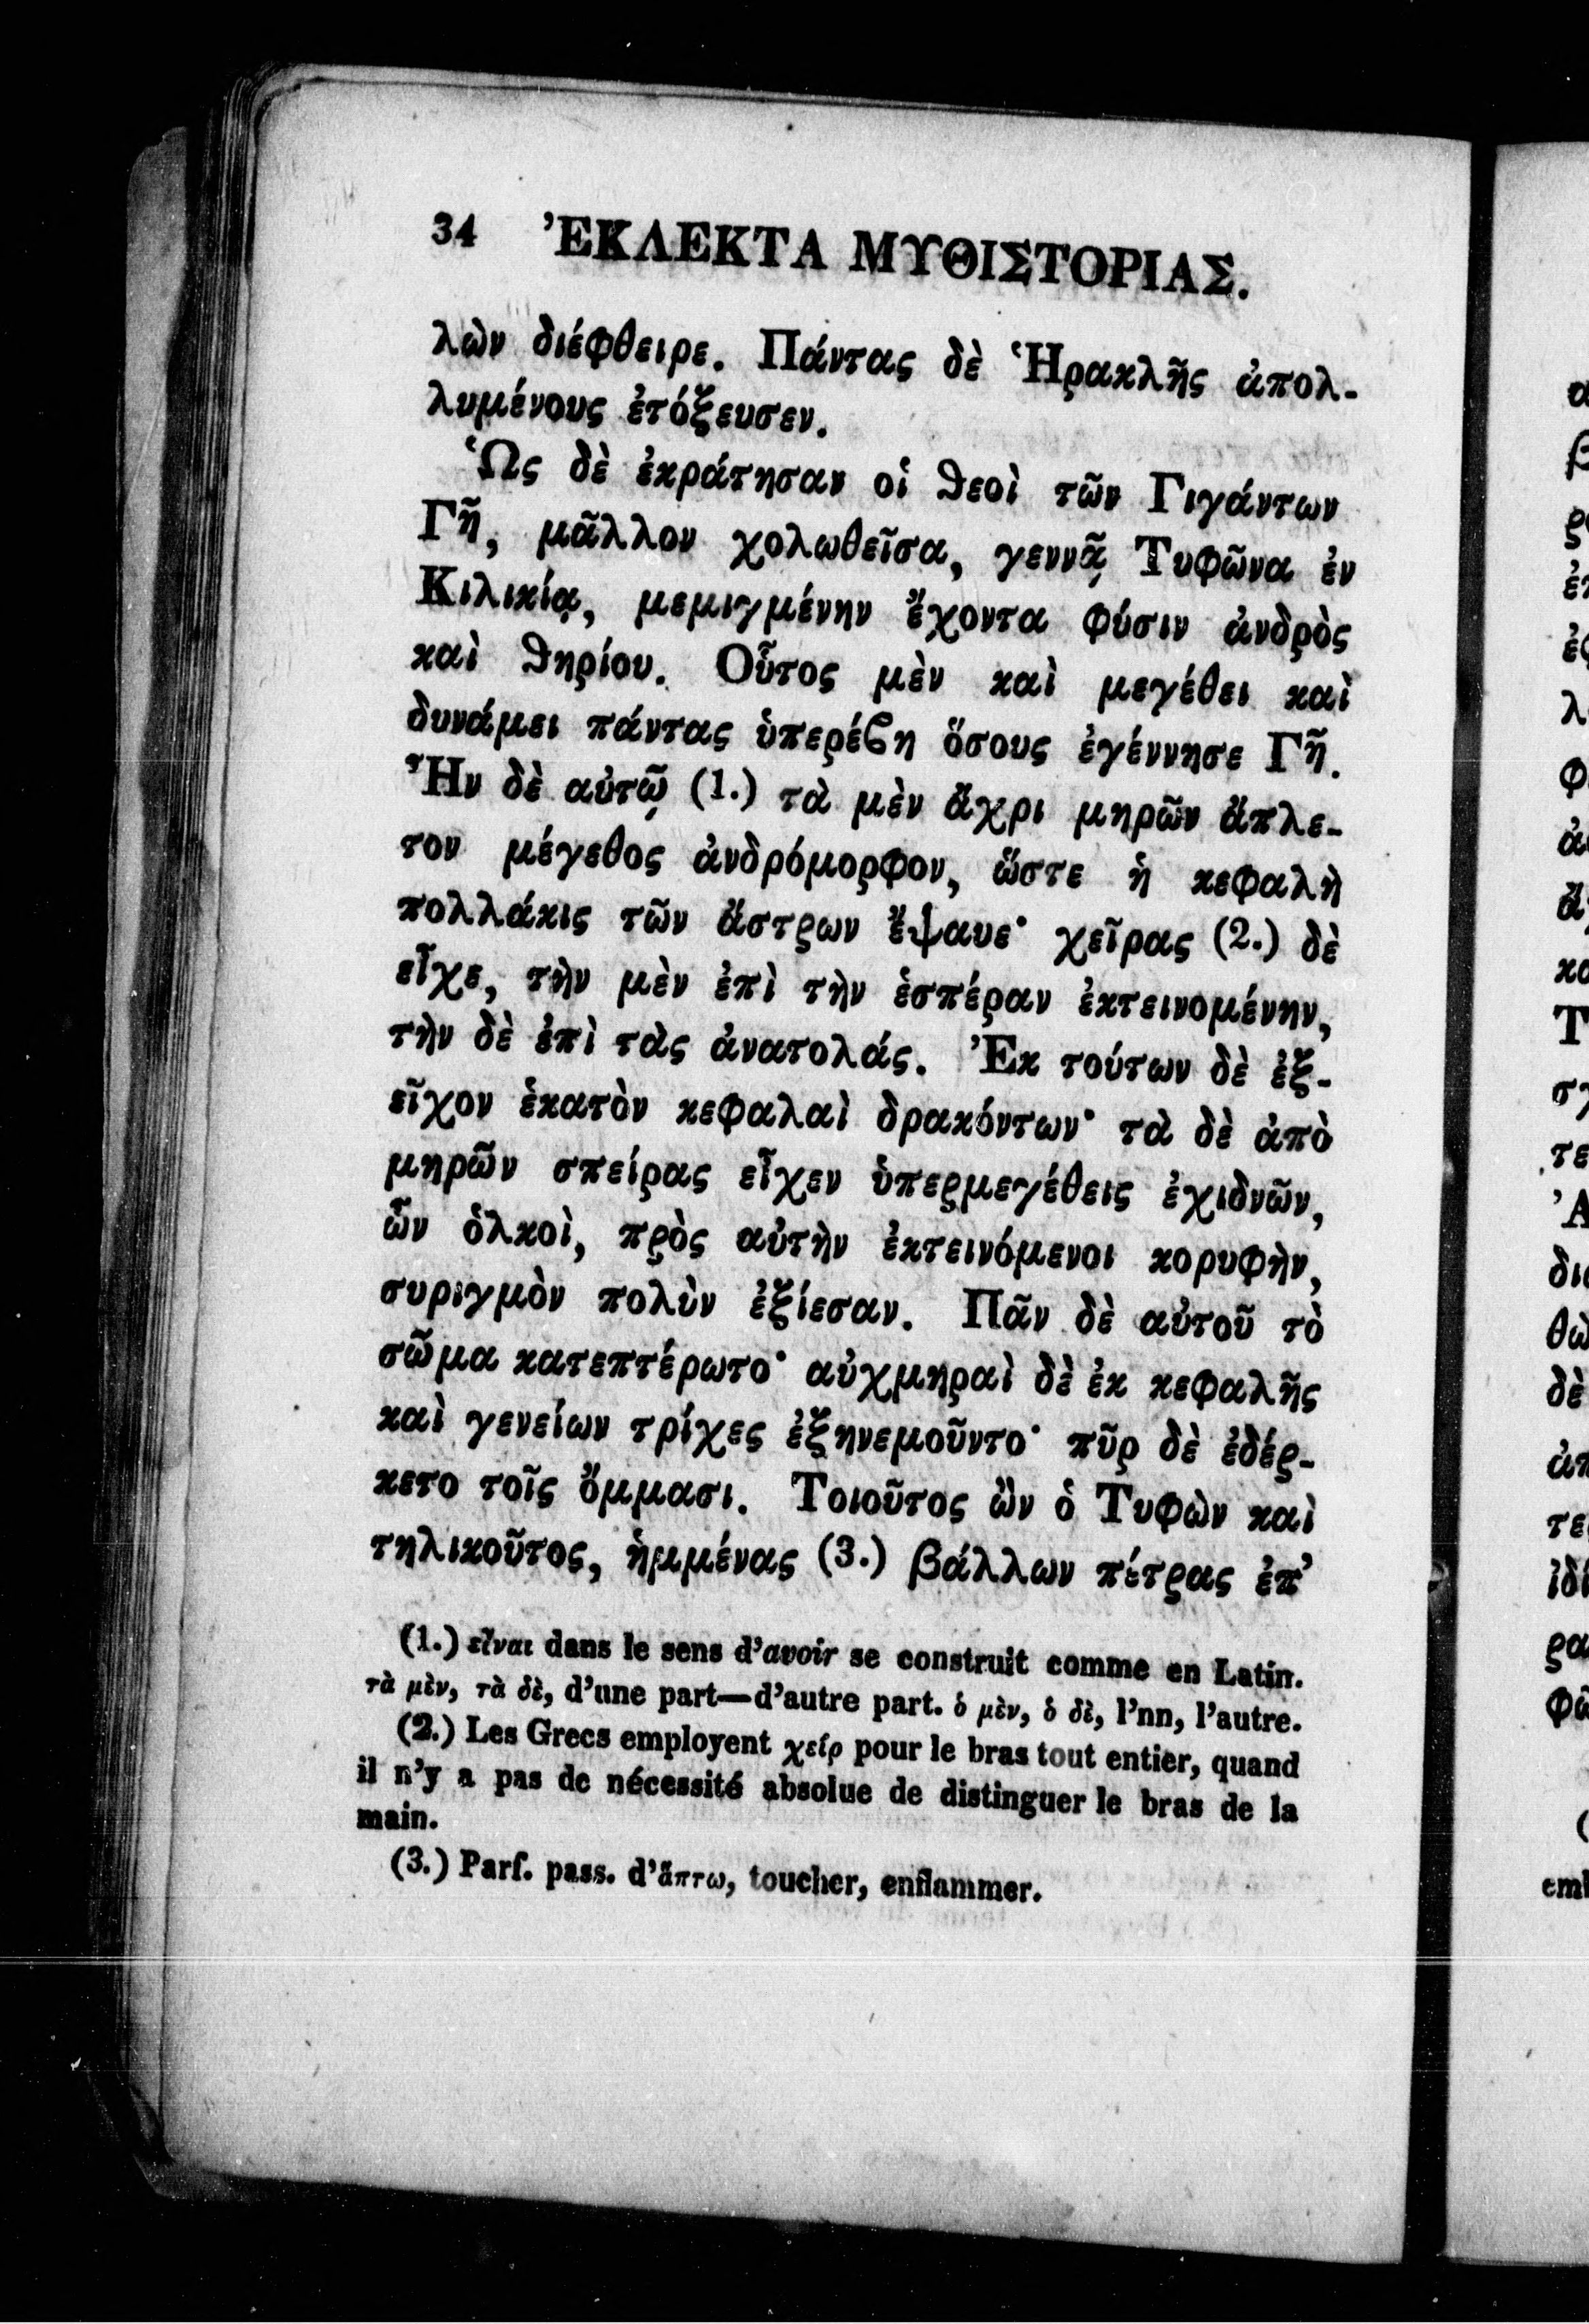 34 ἘΚΛΕΚΤΑ ΜΥΘΙΣΤΟΡΙΑΣ.
λὼν διέφθειρε. Πάντας δὲ Ἡρακλῆς ἀπολ-
λυμένους ἐτόξευσεν.
Ὡς δὲ ἐκράτησαν οἱ θεοὶ τῶν Γιγάντων
Γῆ, μᾶλλον χολωθεῖσα, γεννᾷ Τυφῶνα ἐν
Κιλικίᾳ, μεμιγμένην ἔχοντα φύσιν ἀνδρὸς
καὶ θηρίου. Οὗτος μὲν καὶ μεγέθει καὶ
δυνάμει πάντας ὑπερέβη ὅσους ἐγέννησε Γῆ.
Ἦν δὲ αὐτῷ (1.) τὰ μὲν ἄχρι μηρῶν ἄπλε-
τον μέγεθος ἀνδρόμορφον, ὥστε ἡ κεφαλὴ
πολλάκις τῶν ἄστρων ἔψαυε· χεῖρας (2.) δὲ
εἶχε, τὴν μὲν ἐπὶ τὴν ἑσπέραν ἐκτεινομένην,
τὴν δὲ ἐπὶ τὰς ἀνατολάς. Ἐκ τούτων δὲ ἐξ-
εῖχον ἑκατὸν κεφαλαὶ δρακόντων· τὰ δὲ ἀπὸ
μηρῶν σπείρας εἶχεν ὑπερμεγέθεις ἐχιδνῶν,
ὧν ὁλκοὶ, πρὸς αὐτὴν ἐκτεινόμενοι κορυφὴν,
συριγμὸν πολὺν ἐξίεσαν. Πᾶν δὲ αὐτοῦ τὸ
σῶμα κατεπτέρωτο· αὐχμηραὶ δὲ ἐκ κεφαλῆς
καὶ γενείων τρίχες ἐξηνεμοῦντο· πῦρ δὲ ἐδέρ-
κετο τοῖς ὄμμασι. Τοιοῦτος ὢν ὁ Τυφὼν καὶ
τηλικοῦτος, ἡμμένας (3.) βάλλων πέτρας ἐπ’
(1.) εἶναι dans le sens d’avoir se construit comme en Latin.
τὰ μὲν, τὰ δὲ, d’une part—d’autre part. ὁ μὲν, ὁ δὲ, l’nn, l’autre.
(2.) Les Grecs employent χείρ pour le bras tout entier, quand
il n’y a pas de nécessité absolue de distinguer le bras de la
main.
(3.) Parf. pass. d’ἅπτω, toucher, enflammer.